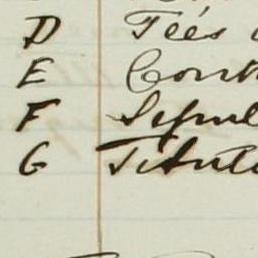 D Tees
E Cont
F Sepul
G Titul